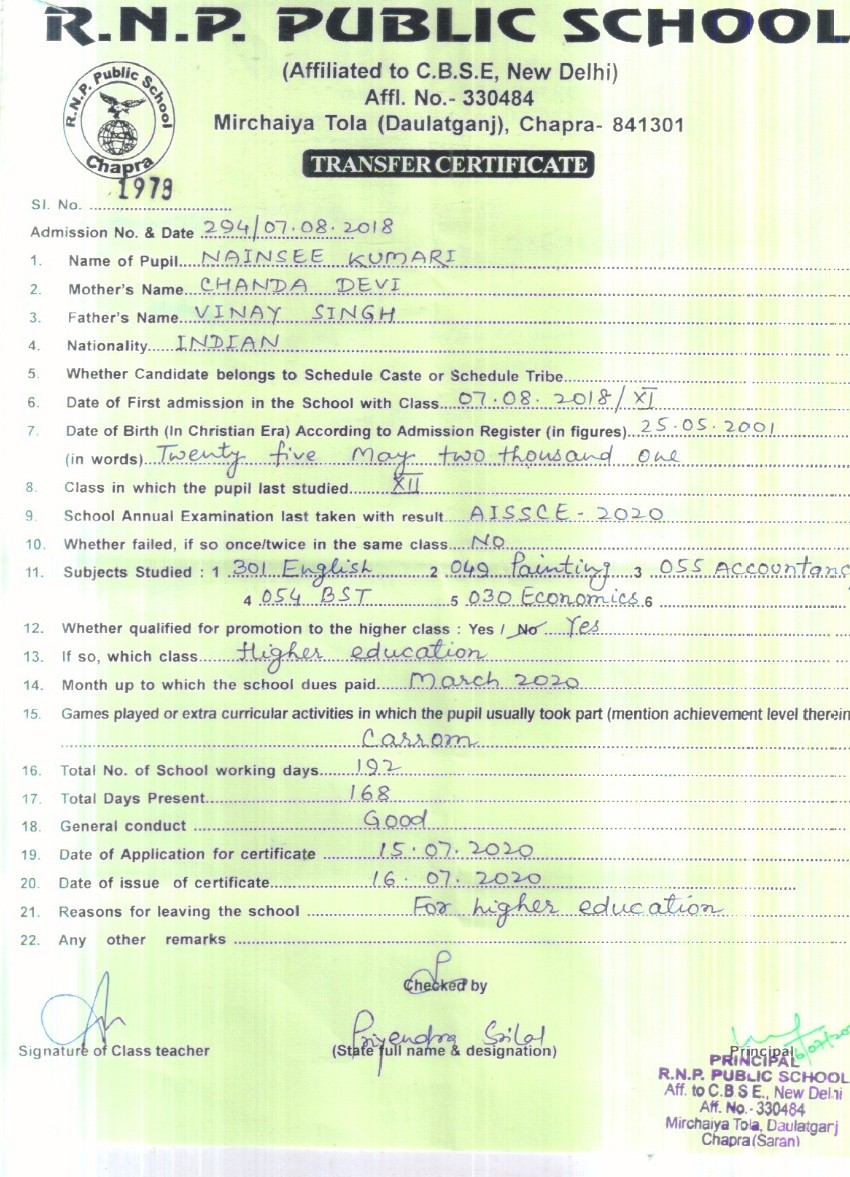 R.N.P. PUBLIC SCHOOL
(Affiliated to C.B.S.E, New Delhi)
Affl. No.- 330484
Mirchaiya Tola (Daulatganj), Chapra- 841301
R.N.P. Public School
Chapra
TRANSFER CERTIFICATE
Sl. No. 1978
Admission No. & Date 294/07.08.2018
1. Name of Pupil NAINSEE KUMARI
2. Mother's Name CHANDA DEVI
3. Father's Name VINAY SINGH
4. Nationality INDIAN
5. Whether Candidate belongs to Schedule Caste or Schedule Tribe
6. Date of First admission in the School with Class 07.08.2018/XI
7. Date of Birth (In Christian Era) According to Admission Register (in figures) 25.05.2001
(in words) Twenty five May two thousand one
8. Class in which the pupil last studied XII
9. School Annual Examination last taken with result AISSCE - 2020
10. Whether failed, if so once/twice in the same class NO
11. Subjects Studied : 1 301 English 2 049 Painting 3 055 Accountanc
4 054 BST 5 030 Economics 6
12. Whether qualified for promotion to the higher class : Yes / No Yes
13. If so, which class Higher education
14. Month up to which the school dues paid March 2020
15. Games played or extra curricular activities in which the pupil usually took part (mention achievement level therein
Carrom
16. Total No. of School working days 192
17. Total Days Present 168
18. General conduct Good
19. Date of Application for certificate 15.07.2020
20. Date of issue of certificate 16.07.2020
21. Reasons for leaving the school For higher education
22. Any other remarks
Checked by
Priyendra
Signature of Class teacher (State full name & designation) Principal
PRINCIPAL
R.N.P. PUBLIC SCHOOL
Aff. to C.B.S.E., New Delhi
Aff. No.- 330484
Mirchaiya Tola, Daulatganj
Chapra (Saran)